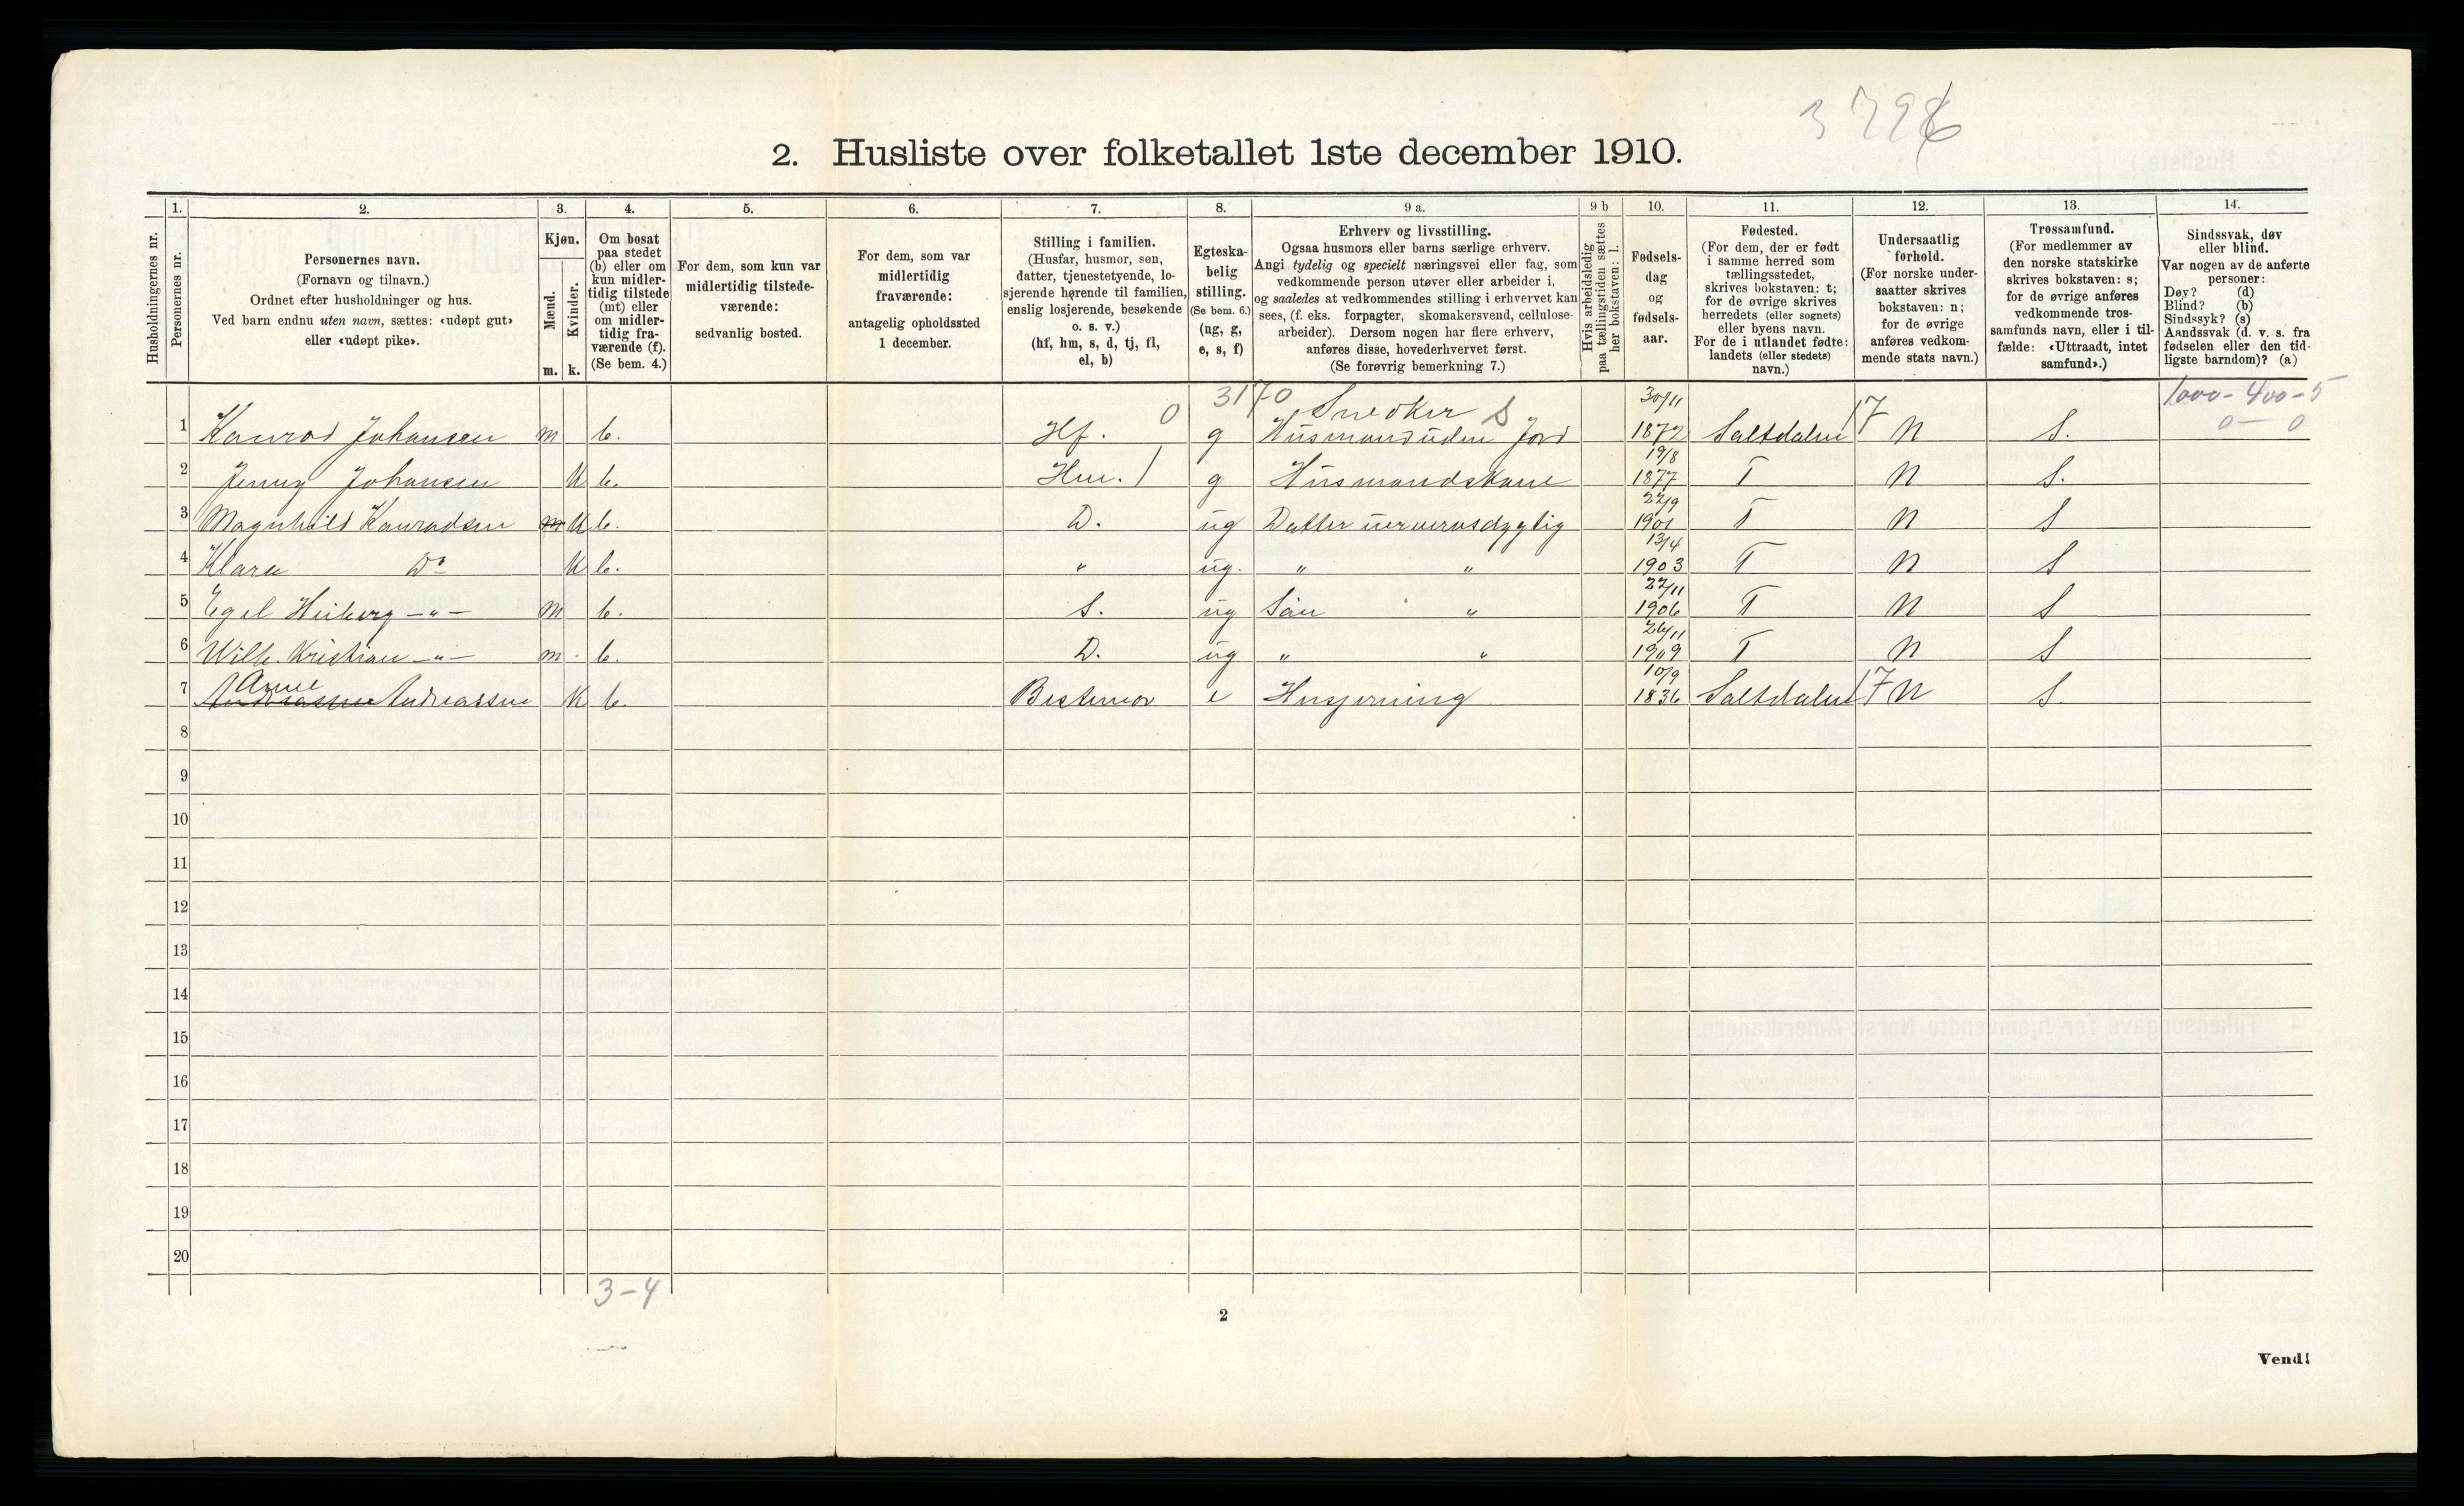 3798
2. Husliste over folketallet 1ste december 1910.
Husholdningernes nr.
1. Personernes nr.
2. Personernes navn.
(Fornavn og tilnavn.)
Ordnet efter husholdninger og hus.
Ved barn endnu uten navn, sættes: «udøpt gut»
eller «udøpt pike».
3. Kjøn.
Mænd. m.
Kvinder. k.
4. Om bosat
paa stedet
(b) eller om
kun midler-
tidig tilstede
(mt) eller
om midler-
tidig fra-
værende (f).
(Se bem. 4.)
5. For dem, som kun var
midlertidig tilstede-
værende:
sedvanlig bosted.
6. For dem, som var
midlertidig
fraværende:
antagelig opholdssted
1 december.
7. Stilling i familien.
(Husfar, husmor, søn,
datter, tjenestetyende, lo-
sjerende hørende til familien,
enslig losjerende, besøkende
o. s. v.)
(hf, hm, s, d, tj, fl,
el, b)
8. Egteska-
belig
stilling.
(Se bem. 6.)
(ug, g,
e, s, f)
9 a. Erhverv og livsstilling.
Ogsaa husmors eller barns særlige erhverv.
Angi tydelig og specielt næringsvei eller fag, som
vedkommende person utøver eller arbeider i,
og saaledes at vedkommendes stilling i erhvervet kan
sees, (f. eks. forpagter, skomakersvend, cellulose-
arbeider). Dersom nogen har flere erhverv,
anføres disse, hovederhvervet først.
(Se forøvrig bemerkning 7.)
9 b Hvis arbeidsledig
paa tællingstiden sættes
her bokstaven: l.
10. Fødsels-
dag
og
fødsels-
aar.
11. Fødested.
(For dem, der er født
i samme herred som
tællingsstedet,
skrives bokstaven: t;
for de øvrige skrives
herredets (eller sognets)
eller byens navn.
For de i utlandet fødte:
landets (eller stedets)
navn.)
12. Undersaatlig
forhold.
(For norske under-
saatter skrives
bokstaven: n;
for de øvrige
anføres vedkom-
mende stats navn.)
13. Trossamfund.
(For medlemmer av
den norske statskirke
skrives bokstaven: s;
for de øvrige anføres
vedkommende tros-
samfunds navn, eller i til-
fælde: «Uttraadt, intet
samfund».)
14. Sindssvak, døv
eller blind.
Var nogen av de anførte
personer:
Døv? (d)
Blind? (b)
Sindssyk? (s)
Aandssvak (d. v. s. fra
fødselen eller den tid-
ligste barndom)? (a)
0 3170 Snedker S 30/11 17 1000-400-5
1 Konrad Johansen m b. Hf. g Husmand uden Jord 1872 Saltdalen N S. 0 — 0
19/8
2 Jenny Johansen K b. Hm. g Husmandskone 1877 T N S.
22/9
3 Magnhild Konradsen m K b. D. ug Datter uerversdygtig 1901 T N S
13/4
4 Klara Do K b. " ug. " " 1903 T N S
22/11
5 Egel Heiberg -"- m b. S. ug Sön " 1906 T N S
26/11
6 Wilh. Kristian -"- m b. D. ug " " 1909 T N S
Anne 10/9 17
7 Andreassen Andreassen K b. Bestemor e Husgerning 1836 Saltdalen N S.
8
9
10
11
12
13
14
15
16
17
18
19
20
3-4
2
Vend!